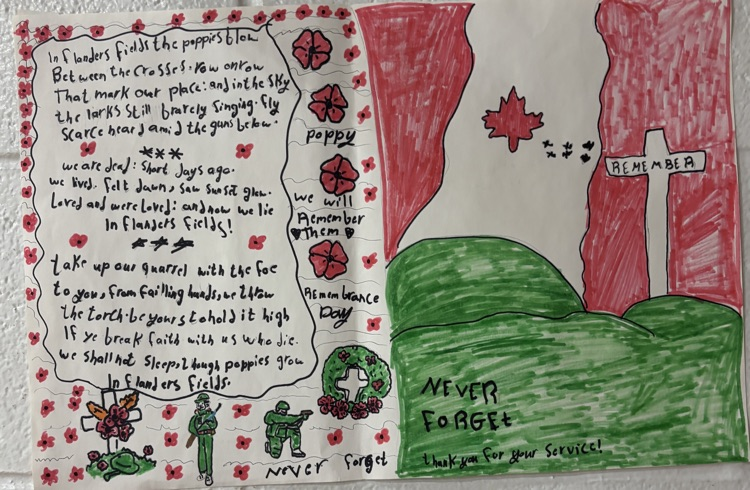 In flanders fields the poppies blow
Between the crosses. row on row
That mark our place: and in the sky
the larks still bravely singing. fly
Scarce heard amid the guns below.
we are dead: short days ago.
we lived. felt dawn, saw sunset glow.
Loved and were loved: and now we lie
In flanders fields!
take up our quarrel with the foe
to you, from failling hands, we throw
the torch. be yours to hold it high
If ye break faith with us who die.
we shall not sleep, though poppies grow
In flanders fields.
poppy
we will
Remember
them
Remembrance
Day
Never forget
REMEMBER
NEVER
FORGEt
thank you for your service!